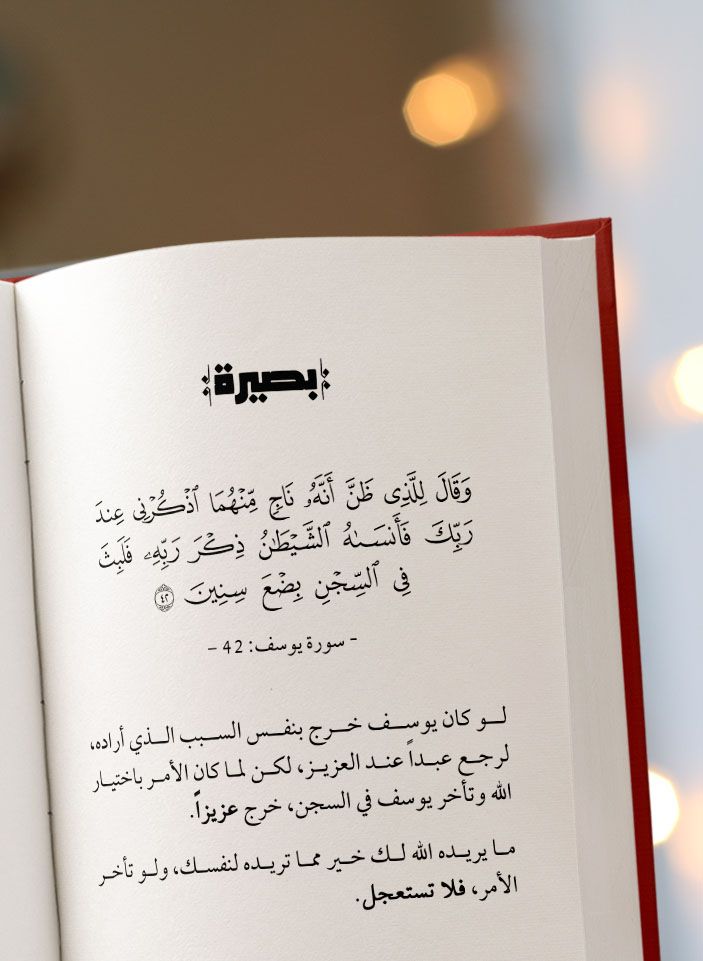 بصيرة
وَقَالَ لِلَّذِى ظَنَّ أَنَّهُۥ نَاجٍ مِّنْهُمَا ٱذْكُرْنِى عِندَ
رَبِّكَ فَأَنسَىٰهُ ٱلشَّيْطَٰنُ ذِكْرَ رَبِّهِۦ فَلَبِثَ
فِى ٱلسِّجْنِ بِضْعَ سِنِينَ ٤٢
- سورة يوسف: 42 -
لو كان يوسف خرج بنفس السبب الذي أراده،
لرجع عبداً عند العزيز، لكن لما كان الأمر باختيار
الله وتأخر يوسف في السجن، خرج عزيزاً.
ما يريده الله لك خير مما تريده لنفسك، ولو تأخر
الأمر، فلا تستعجل.